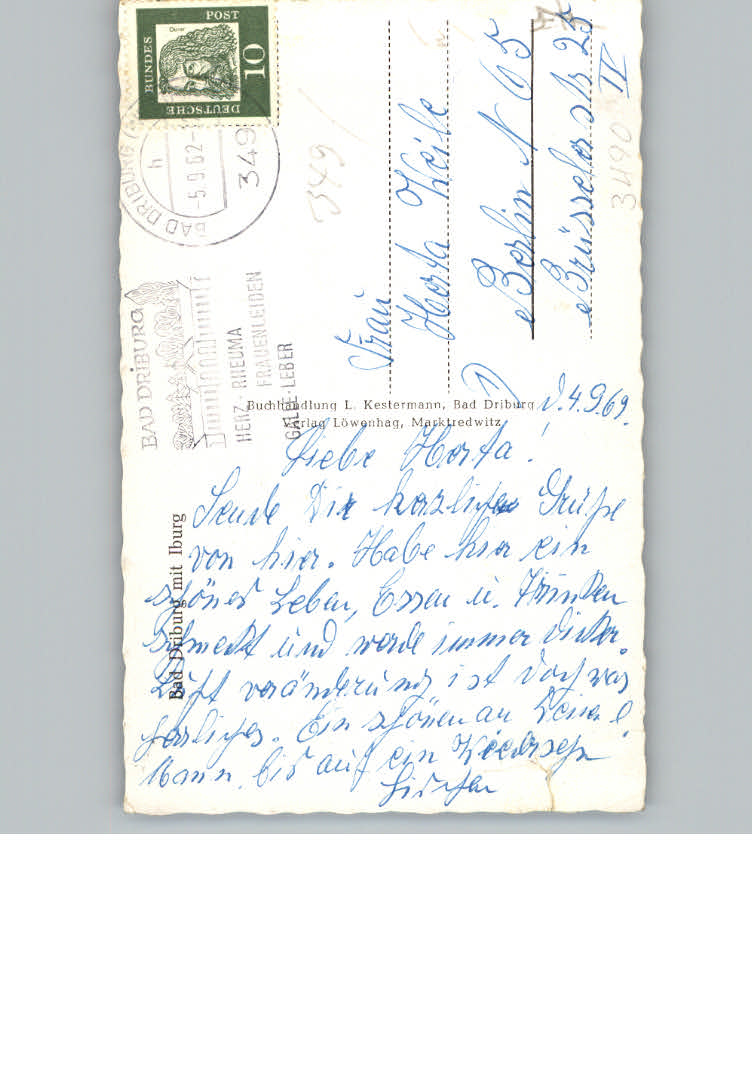 DEUTSCHE
BUNDES
POST
10
Dürer
BAD DRIBURG
h
-5.9.62-
349
BAD DRIBURG
HERZ - RHEUMA
FRAUENLEIDEN
GALLE-LEBER
349
3490
Frau
Herta Keile
Berlin N 65
Brüsselerstr 25
IV
Buchhandlung L. Kestermann, Bad Driburg
Verlag Löwenhag, Marktredwitz
Bad Driburg mit Iburg
D. 4.9.62.
Liebe Herta!
Sende Dir herzliche Grüße
von hier. Habe hier ein
schönes Leben, Essen u. Trinken
schmeckt und werde immer dicker.
Luftveränderung ist doch was
herrliches. Ein schönen an Deinen
Mann, bis auf ein Wiedersehn